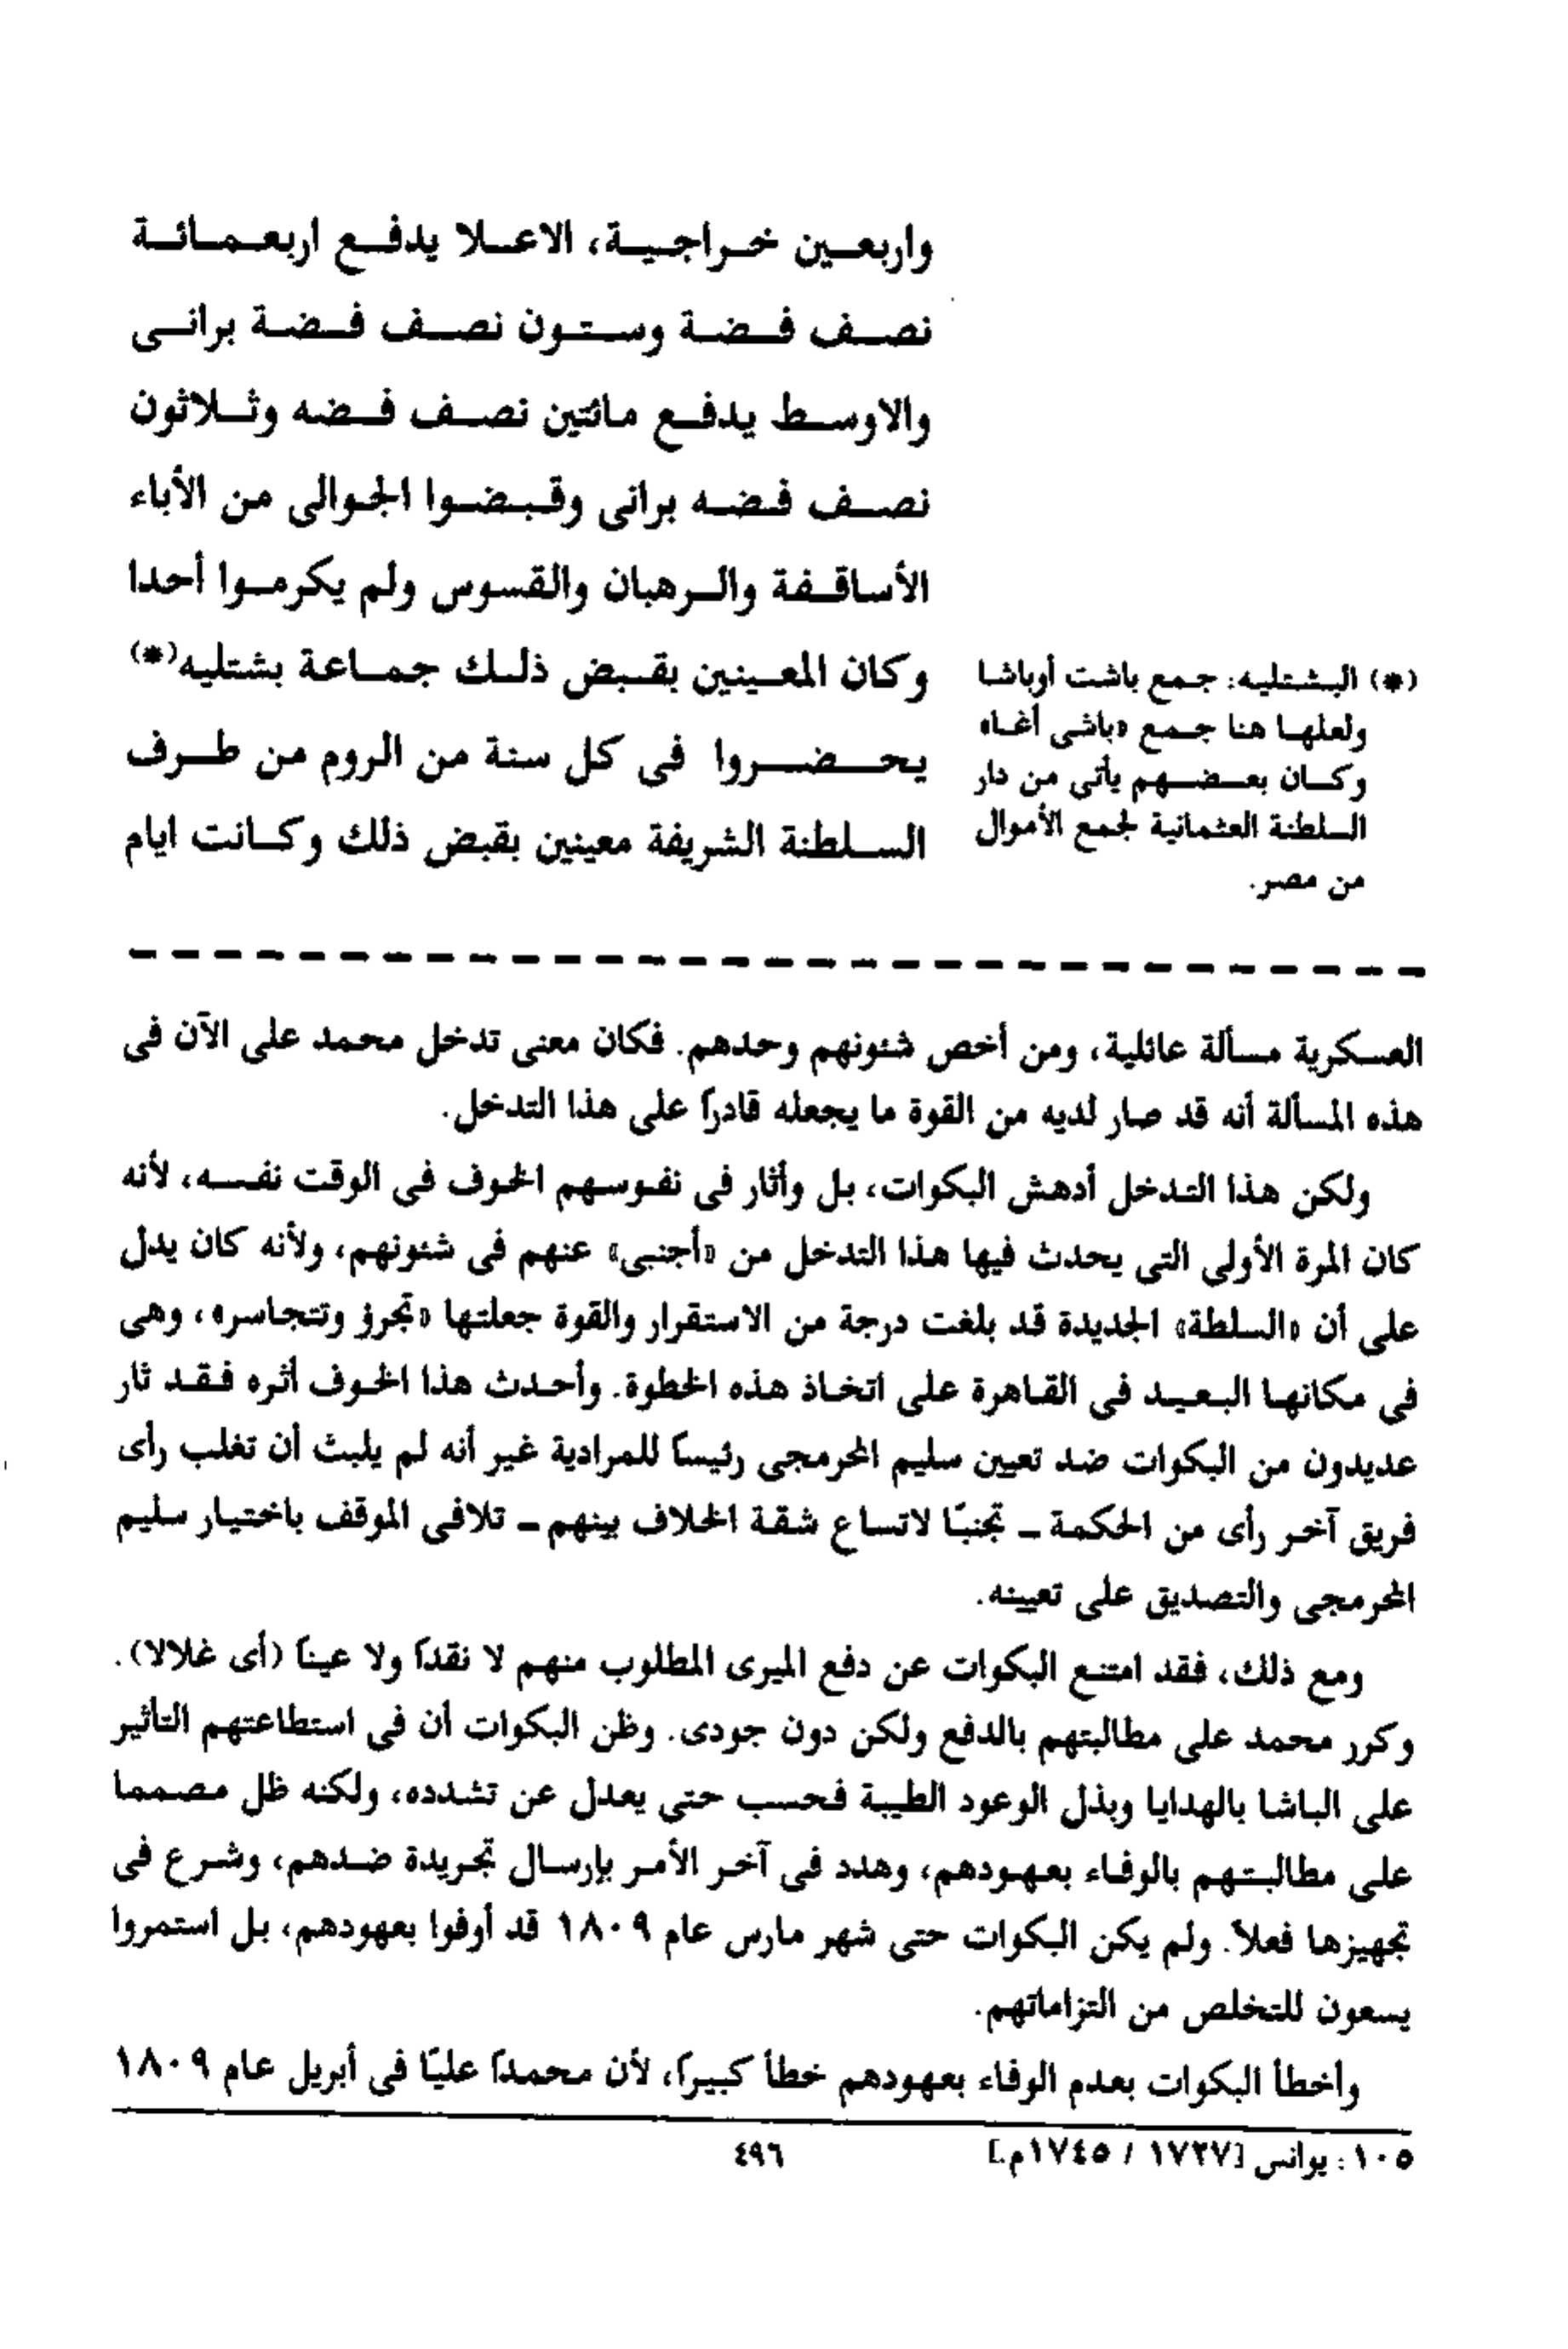 واربعين خراجية، الاعلا يدفع اربعمائة
نصف فضة وستون نصف فضة برانى
والاوسط يدفع مائتين نصف فضه وثلاثون
نصف فضه برانى وقبضوا الجوالى من الأباء
الأساقفة والرهبان والقسوس ولم يكرموا أحدا
وكان المعينين بقبض ذلك جماعة بشتليه(*)
يحضروا فى كل سنة من الروم من طرف
السلطنة الشريفة معينين بقبض ذلك وكانت ايام
(*) البشتليه: جمع باشت أوباشا
ولعلها هنا جمع «باشى أغا»
وكان بعضهم يأتى من دار
السلطنة العثمانية لجمع الأموال
من مصر.
العسكرية مسألة عائلية، ومن أخص شئونهم وحدهم. فكان معنى تدخل محمد على الآن فى
هذه المسألة أنه قد صار لديه من القوة ما يجعله قادرًا على هذا التدخل.
ولكن هذا التدخل أدهش البكوات، بل وأثار فى نفوسهم الخوف فى الوقت نفسه، لأنه
كان المرة الأولى التى يحدث فيها هذا التدخل من «أجنبى» عنهم فى شئونهم، ولأنه كان يدل
على أن «السلطة» الجديدة قد بلغت درجة من الاستقرار والقوة جعلتها «تجرؤ وتتجاسر»، وهى
فى مكانها البعيد فى القاهرة على اتخاذ هذه الخطوة. وأحدث هذا الخوف أثره فقد ثار
عديدون من البكوات ضد تعيين سليم المحرمجى رئيسًا للمرادية غير أنه لم يلبث أن تغلب رأى
فريق آخر رأى من الحكمة ــ تجنبًا لاتساع شقة الخلاف بينهم ــ تلافى الموقف باختيار سليم
المحرمجى والتصديق على تعيينه.
ومع ذلك، فقد امتنع البكوات عن دفع الميرى المطلوب منهم لا نقدًا ولا عينًا (أى غلالا).
وكرر محمد على مطالبتهم بالدفع ولكن دون جودى. وظن البكوات أن فى استطاعتهم التأثير
على الباشا بالهدايا وبذل الوعود الطيبة فحسب حتى يعدل عن تشدده، ولكنه ظل مصمما
على مطالبتهم بالوفاء بعهودهم، وهدد فى آخر الأمر بإرسال تجريدة ضدهم، وشرع فى
تجهيزها فعلاً. ولم يكن البكوات حتى شهر مارس عام ١٨٠٩ قد أوفوا بعهودهم، بل استمروا
يسعون للتخلص من التزاماتهم.
وأخطأ البكوات بعدم الوفاء بعهودهم خطأ كبيرًا، لأن محمدًا عليًا فى أبريل عام ١٨٠٩
١٠٥ : يوانس [١٧٢٧ / ١٧٤٥م.]
٤٩٦